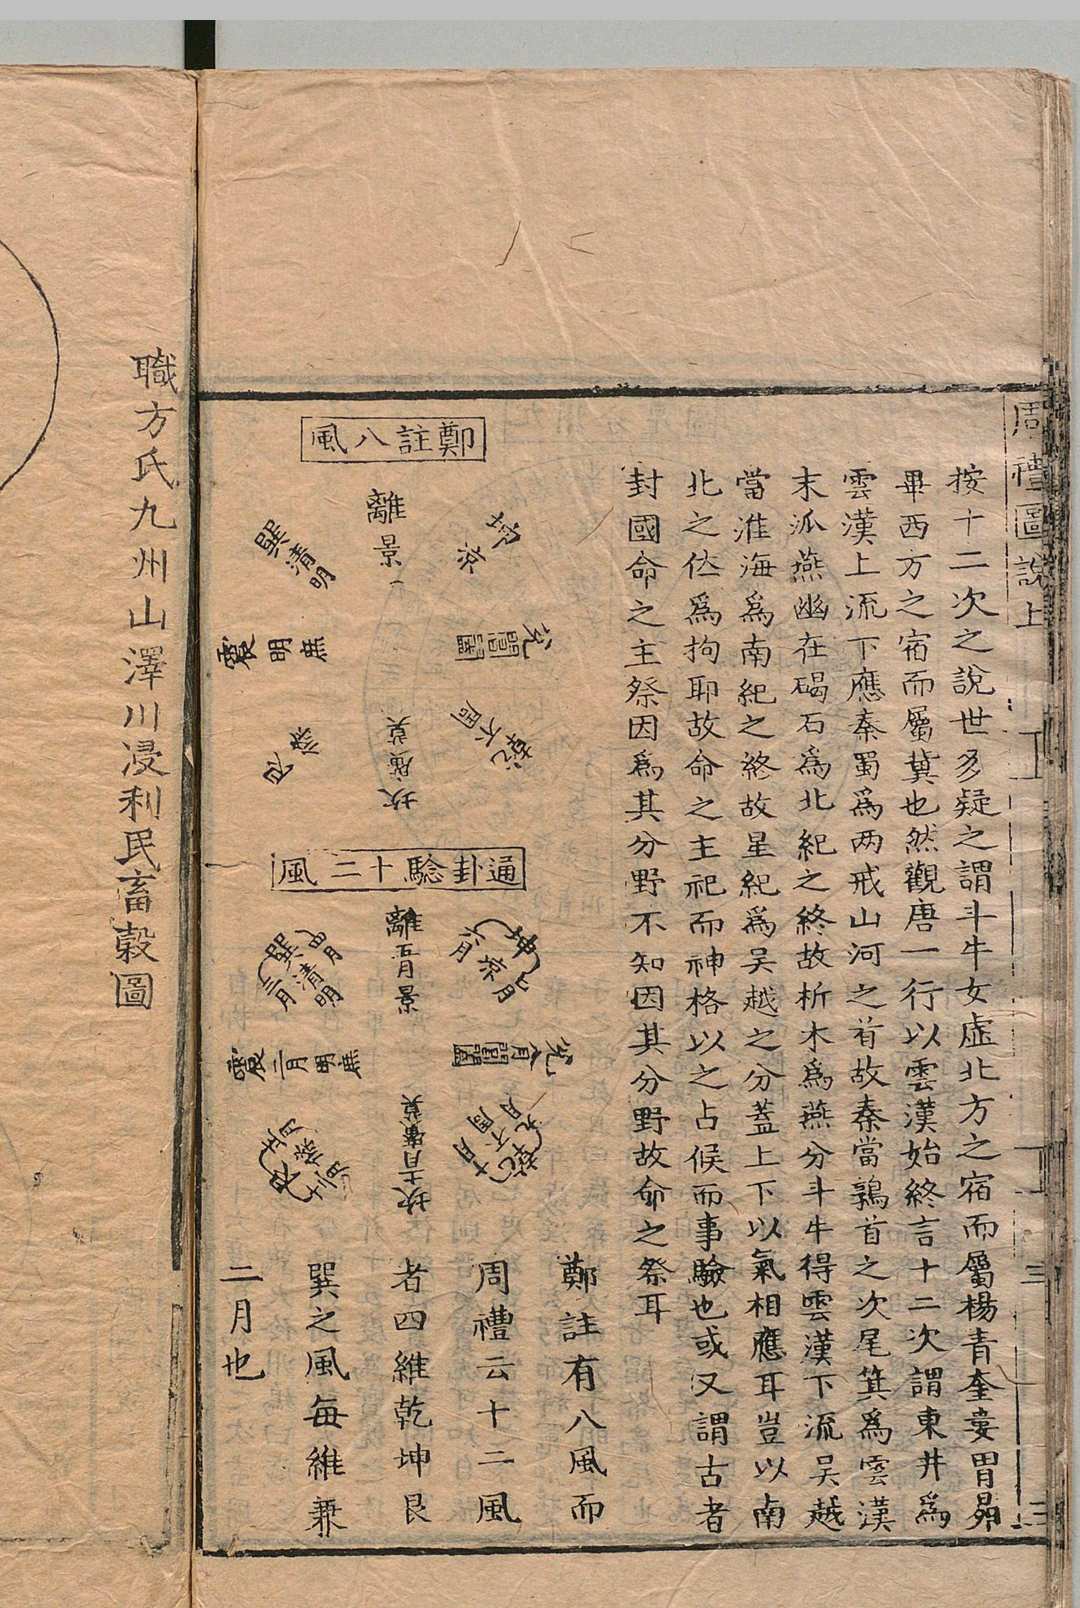 周禮圖說上
按十二次之說世多疑之謂斗牛女虛北方之宿而屬楊青奎婁胃昴
畢西方之宿而屬冀也然觀唐一行以雲漢始終言十二次謂東井為
雲漢上流下應秦蜀為两戒山河之首故秦當鶉首之次尾箕為雲漢
末派燕幽在碣石為北紀之終故析木為燕分斗牛得雲漢下流吳越
當淮海為南紀之終故星紀為吳越之分蓋上下以氣相應耳豈以南
北之位為拘耶故命之主祀而神格以之占候而事驗也或又謂古者
封國命之主祭因為其分野不知因其分野故命之祭耳
鄭註八風
坤 涼
離 景
巽 清明
兌 閶闔
震 明庶
乾 不周
坎 廣莫
艮 條
通卦驗十二風
坤 涼 六月 七月
離 五月 景
巽 清明 三月 四月
兌 八月 閶闔
震 二月 明庶
乾 不周 九月 十月
坎 十一月 廣莫
艮 條 正月 十二月
鄭註有八風而
周禮云十二風
者四維乾坤艮
巽之風每維兼
二月也
職方氏九州山澤川浸利民畜穀圖